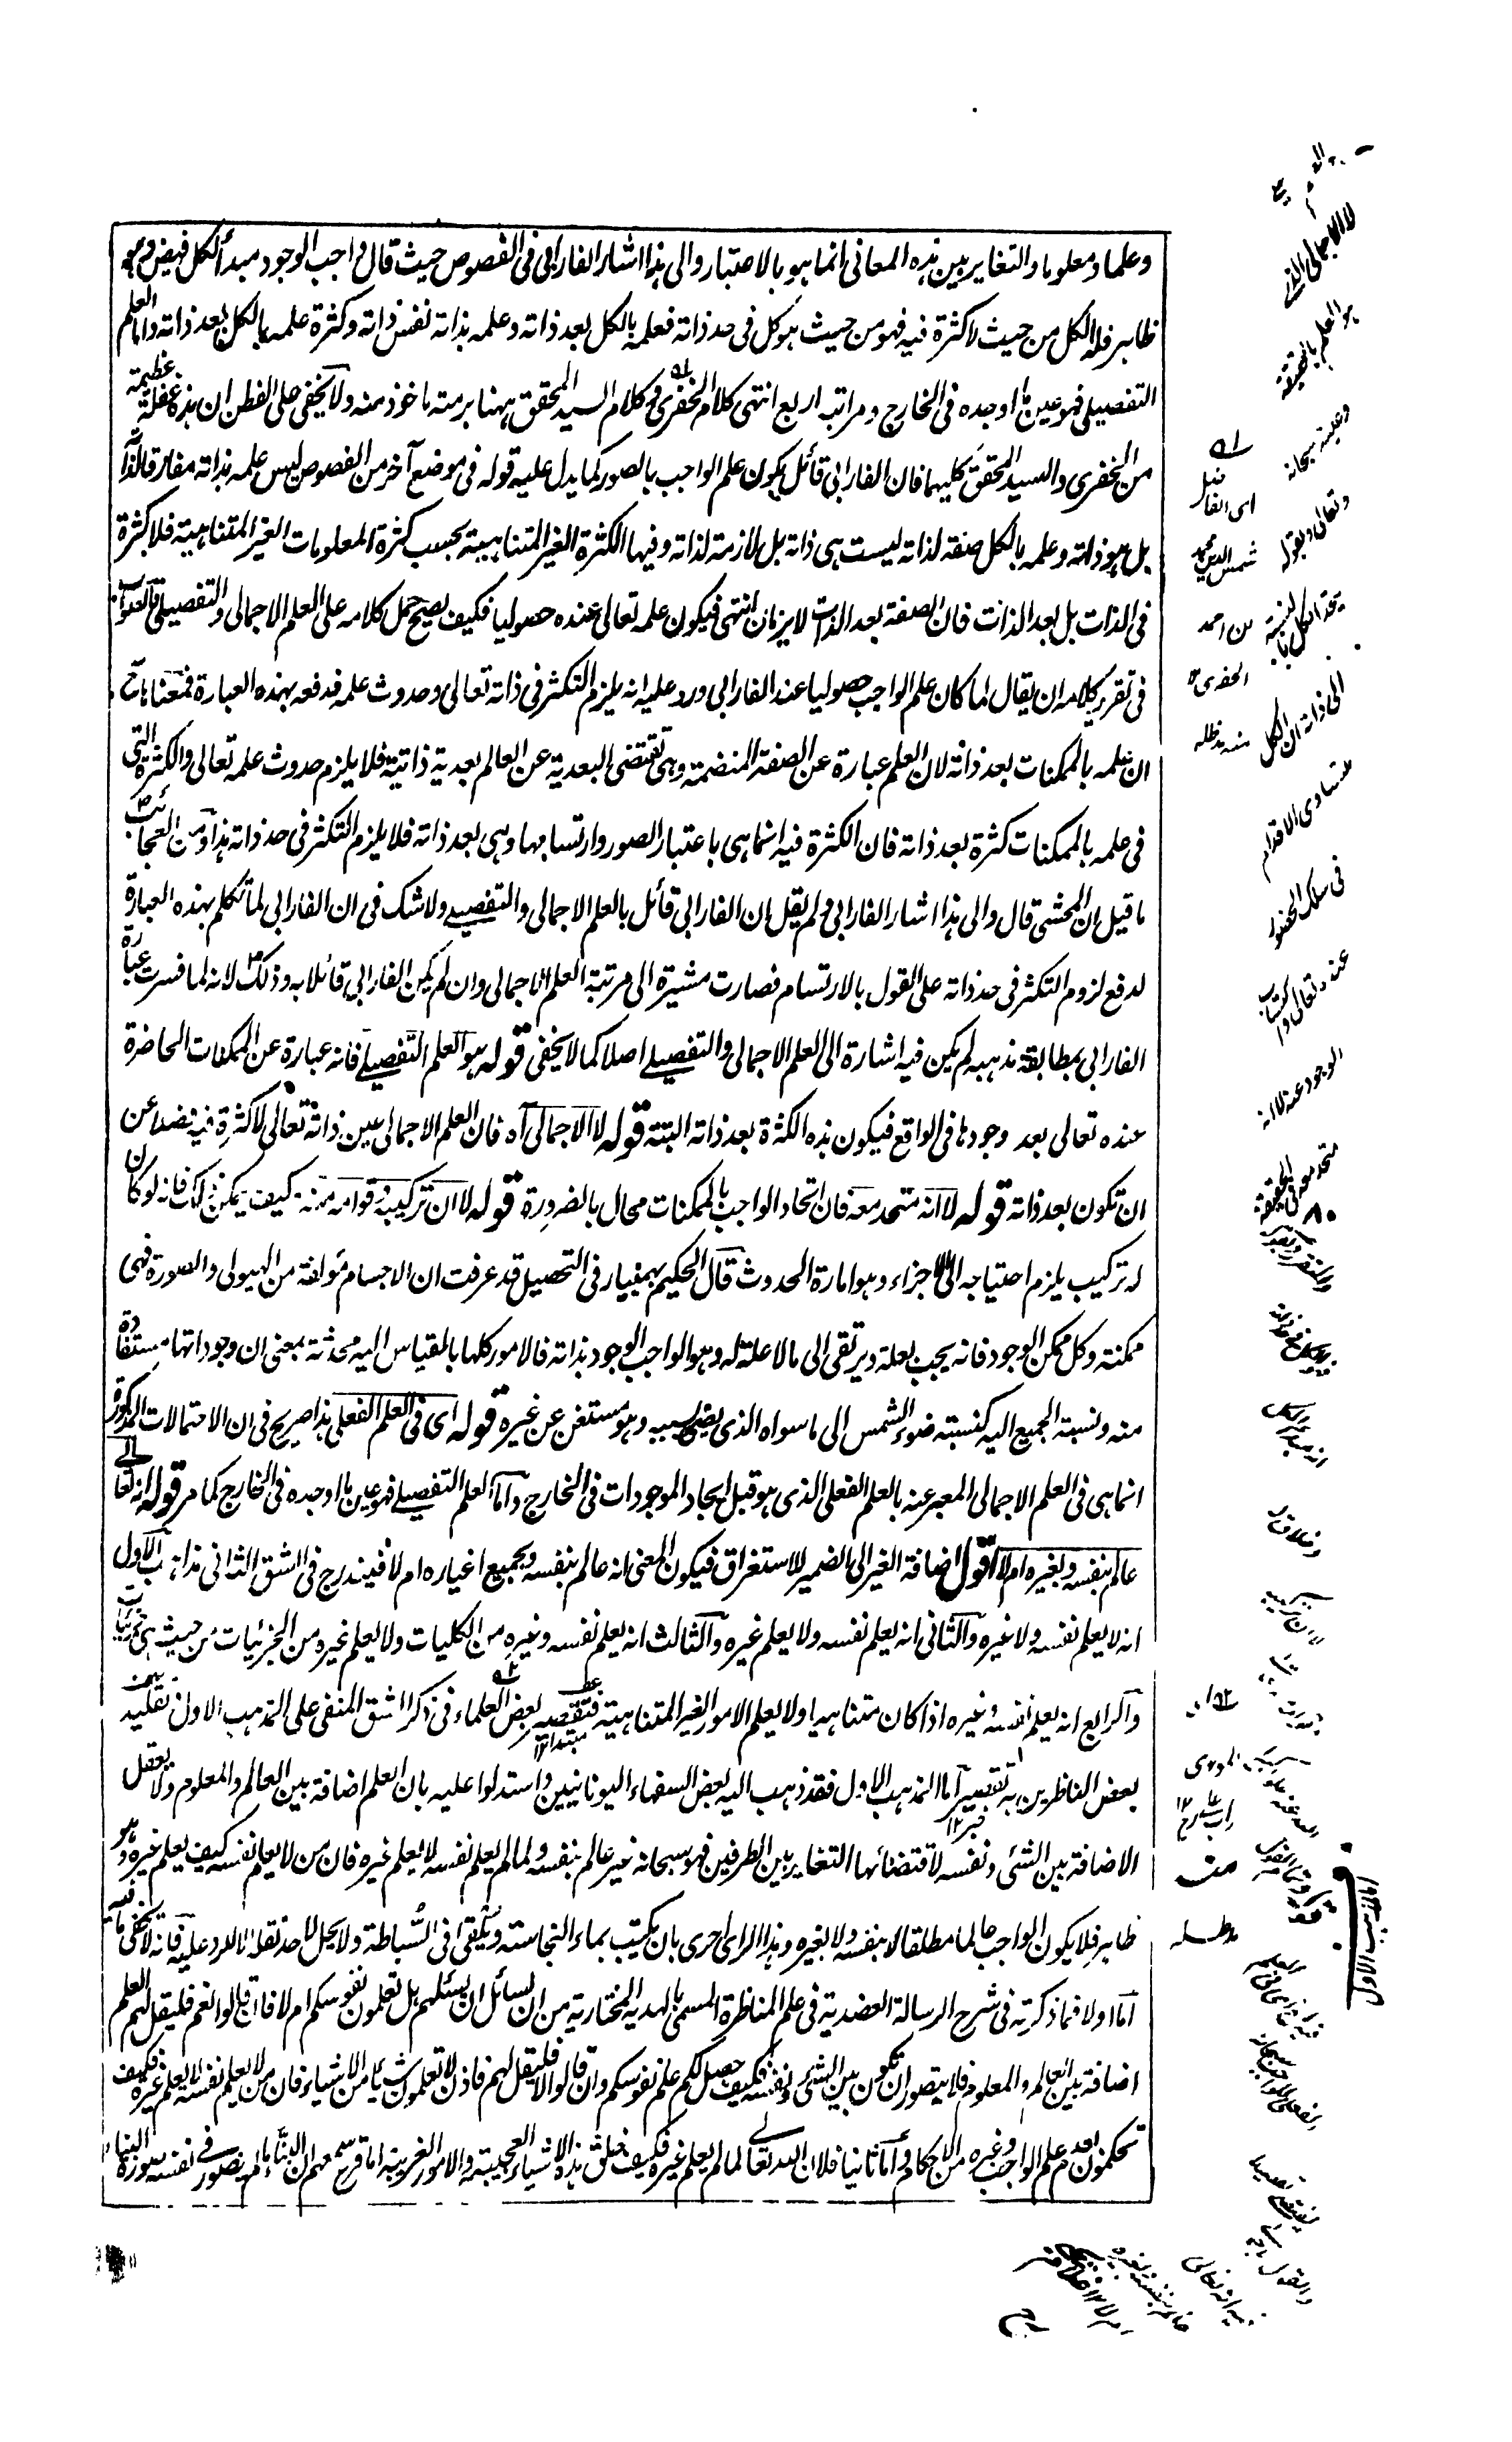 وعلما ومعلوما والتغاير بين هذه المعاني انما هو بالاعتبار والى هذا اشار الفارابي في الفصوص حيث قال واجب الوجود مبدأ لكل فيض وهو
ظاهر فله الكل من حيث لا كثرة فيه فهو من حيث هو كل في حد ذاته فعلمه بالكل بعد ذاته وعلمه بذاته نفس ذاته وكثرة علمه بالكل بعد ذاته واما العلم
التفصيلي فهو عين ما اوجده في الخارج ومراتبه اربع انتهى كلام الخفري وكلام السيد المحقق ههنا برمته ماخوذ منه ولا يخفى على الفطن ان هذه غفلة عظيمة
من الخفري والسيد المحقق كليهما فان الفارابي قائل بكون علم الواجب بالصور كما يدل عليه قوله في موضع آخر من الفصوص ليس علمه بذاته مفارقا لذاته
بل هو ذاته وعلمه بالكل صفة لذاته ليست هي ذاته بل لازمة لذاته وفيها الكثرة الغير المتناهية بحسب كثرة المعلومات الغير المتناهية فلا كثرة
في الذات بل بعد الذات فان الصفة بعد الذات لا بزمان انتهى فيكون علمه تعالى عنده حصوليا فكيف يصح حمل كلامه على العلم الاجمالي والتفصيلي فالصواب
في تقرير كلامه ان يقال لما كان علم الواجب حصوليا عند الفارابي ورد عليه انه يلزم التكثر في ذاته تعالى وحدوث علمه فدفعه بهذه العبارة فمعناها
ان علمه بالممكنات بعد ذاته لان العلم عبارة عن الصفة المنضمة وهي تقتضي البعدية عن العالم بعدية ذاتية فلا يلزم حدوث علمه تعالى والكثرة التي
في علمه بالممكنات كثرة بعد ذاته فان الكثرة فيه انما هي باعتبار الصور وارتسامها وهي بعد ذاته فلا يلزم التكثر في حد ذاته هذا ومن العجائب
ما قيل ان المحشي قال والى هذا اشار الفارابي ولم يقل ان الفارابي قائل بالعلم الاجمالي والتفصيلي ولا شك في ان الفارابي لما تكلم بهذه العبارة
لدفع لزوم التكثر في حد ذاته على القول بالارتسام فصارت مشيرة الى مرتبة العلم الاجمالي وان لم يكن الفارابي قائلا به وذلك لانه لما فسرت عبارة
الفارابي بمطابقة مذهبه لم يكن فيه اشارة الى العلم الاجمالي والتفصيلي اصلا كما لا يخفى قوله هو العلم التفصيلي فانه عبارة عن الممكنات الحاضرة
عنده تعالى بعد وجودها في الواقع فيكون هذه الكثرة بعد ذاته البتة قوله لا الاجمالي آه فان العلم الاجمالي عين ذاته تعالى لا كثرة فيه فضلا عن
ان تكون بعد ذاته قوله لا انه متحد معه فان اتحاد الواجب بالممكنات محال بالضرورة قوله لا ان تركيبه وقوامه منه كيف يمكن ذلك فانه لو كان
له تركيب يلزم احتياجه الى الاجزاء وهو امارة الحدوث قال الحكيم بهمنيار في التحصيل قد عرفت ان الاجسام مؤلفة من الهيولى والصورة فهي
ممكنة وكل ممكن الوجود فانه يجب بعلة ويرتقى الى ما لا علة له وهو الواجب الوجود بذاته فالامور كلها بالقياس اليه محدثة بمعنى ان وجوداتها مستفادة
منه ونسبة الجميع اليه كنسبة ضوء الشمس الى ما سواه الذي يضئ بسببه وهو مستغن عن غيره قوله اى في العلم الفعلي هذا صريح في ان الاحتمالات المذكورة
انما هي في العلم الاجمالي المعبر عنه بالعلم الفعلي الذي هو قبل ايجاد الموجودات في الخارج واما العلم التفصيلي فهو عين ما اوجده في الخارج كما مر قوله انه تعالى
عالم بنفسه وبغيره ام لا اقول اضافة الغير الى الضمير للاستغراق فيكون المعنى انه عالم بنفسه وبجميع اغياره ام لا فيندرج في الشق الثاني مذاهب الاول
انه لا يعلم نفسه ولا غيره والثاني انه يعلم نفسه ولا يعلم غيره والثالث انه يعلم نفسه وغيره من الكليات ولا يعلم غيره من الجزئيات من حيث هي جزئيات
والرابع انه يعلم نفسه وغيره اذا كان متناهيا ولا يعلم الامور الغير المتناهية فتقصير بعض العلماء في ذكر الشق المنفي على المذهب الاول تقليد
بعض الناظرين به تقصير اما المذهب الاول فقد ذهب اليه بعض السفهاء اليونانيين واستدلوا عليه بان العلم اضافة بين العالم والمعلوم ولا يعقل
الاضافة بين الشئ ونفسه لاقتضائها التغاير بين الطرفين فهو سبحانه غير عالم بنفسه ولما لم يعلم نفسه لا يعلم غيره فان من لا يعلم نفسه كيف يعلم غيره وهو
ظاهر فلا يكون الواجب عالما مطلقا لا بنفسه ولا بغيره وهذا الراى احرى بان يكتب بماء النجاسة ويلقى في السباطة ولا يحل لاحد نقله الا للرد عليه فانه لا يخفى ما فيه
اما اولا فما ذكرته في شرح الرسالة العضدية في علم المناظرة المسمى بالهدية المختارية من ان لسائل ان يسئلهم هل تعلمون نفوسكم ام لا فان قالوا نعم فليقل لهم العلم
اضافة بين العالم والمعلوم فلا يتصور ان تكون بين الشئ ونفسه فكيف حصل لكم علم نفوسكم وان قالوا لا فليقل لهم فاذن لا تعلمون شيئا من الاشياء فان من لا يعلم نفسه لا يعلم غيره فكيف
تحكمون بعدم علم الواجب وغيره من الاحكام واما ثانيا فلان الله تعالى لما لم يعلم غيره فكيف خلق هذه الاشياء العجيبة والامور الغريبة اما قرع سمعهم ان البناء ما لم يتصور في نفسه صورة البناء
لا الاجمالي الذي
هو العلم بالحقيقة
وعليه سبحانه
وتعالى وبقوله
الى ذاته ان الكل
متساوي الاقدام
في سلك الحضور
متحد معه في الحقيقة
اى الفاضل
شمس الدين محمد
بن احمد
الخفري
منه مدظله
اما المذهب الاول